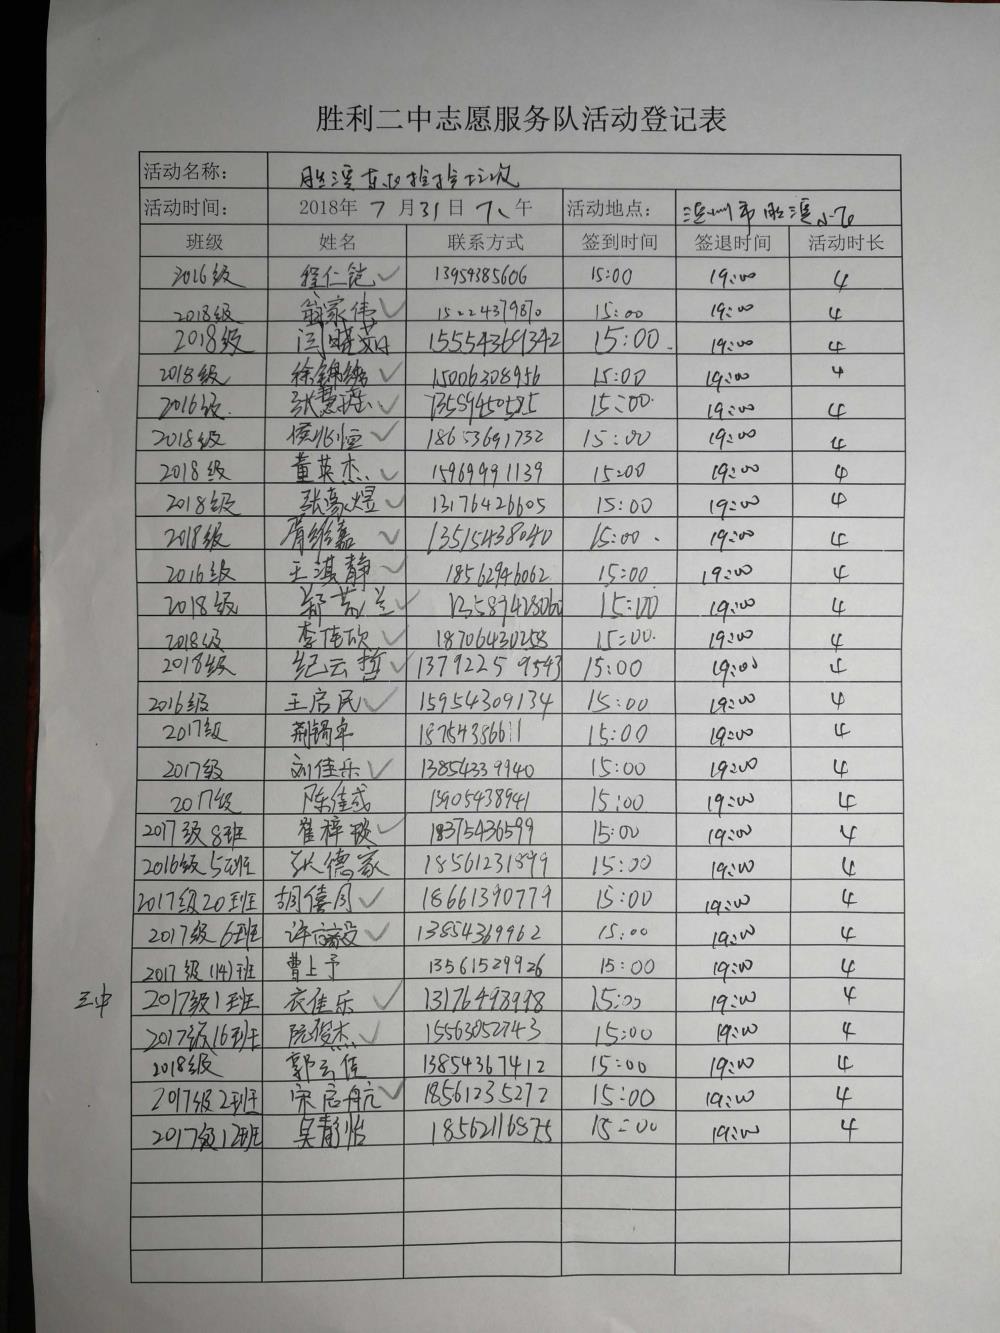 胜利二中志愿服务队活动登记表
活动名称: 胜滨社区捡垃圾
活动时间: 2018年 7 月 31 日 下 午 活动地点: 滨州市胜滨小区
班级 姓名 联系方式 签到时间 签退时间 活动时长
2016级 程仁铠 13954385606 15:00 19:00 4
2018级 翁家伟 15224379870 15:00 19:00 4
2018级 闫晓茹 15554369342 15:00 19:00 4
2018级 徐锦 15006308956 15:00 19:00 4
2016级 张慧瑶 13589450585 15:00 19:00 4
2018级 侯兆恒 18653691732 15:00 19:00 4
2018级 董英杰 15969991139 15:00 19:00 4
2018级 张豪煜 13176426605 15:00 19:00 4
2018级 胥维嘉 13515438040 15:00 19:00 4
2016级 王淇静 18562946062 15:00 19:00 4
2018级 郑兰 13589428060 15:00 19:00 4
2018级 李佳欣 18706430258 15:00 19:00 4
2018级 纪云哲 13792259543 15:00 19:00 4
2016级 王启民 15954309134 15:00 19:00 4
2017级 荆锡卓 18754386611 15:00 19:00 4
2017级 刘佳乐 13854339940 15:00 19:00 4
2017级 陈佳彧 13905438941 15:00 19:00 4
2017级8班 崔梓琰 18375436599 15:00 19:00 4
2016级5班 张德豪 18561231899 15:00 19:00 4
2017级20班 胡僖月 18661390779 15:00 19:00 4
2017级6班 许毅 13854369962 15:00 19:00 4
2017级(14)班 曹上予 13561529926 15:00 19:00 4
三中 2017级1班 衣佳乐 13176493998 15:00 19:00 4
2017级16班 阮俊杰 15563052743 15:00 19:00 4
2018级 郭云佳 13854367412 15:00 19:00 4
2017级2班 宋启航 18561235272 15:00 19:00 4
2017级12班 吴静怡 18562116875 15:00 19:00 4